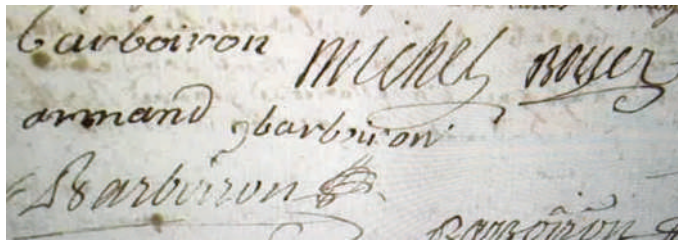 barboiron Michel Boyer
armand barboiron
Barboiron
Barboiron